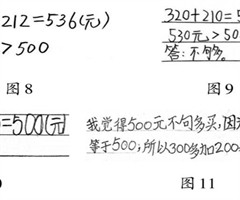 212=536(元)
>500
图 8
320+210=5
530元>50
答:不够。
图 9
=500(元)
我觉得500元不句多买,因
等于500,所以300多加200
图 11